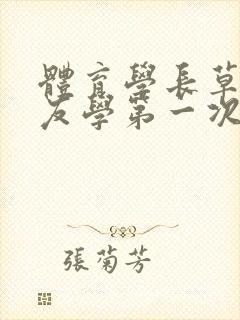 體育學長草
友學第一次
張菊芳